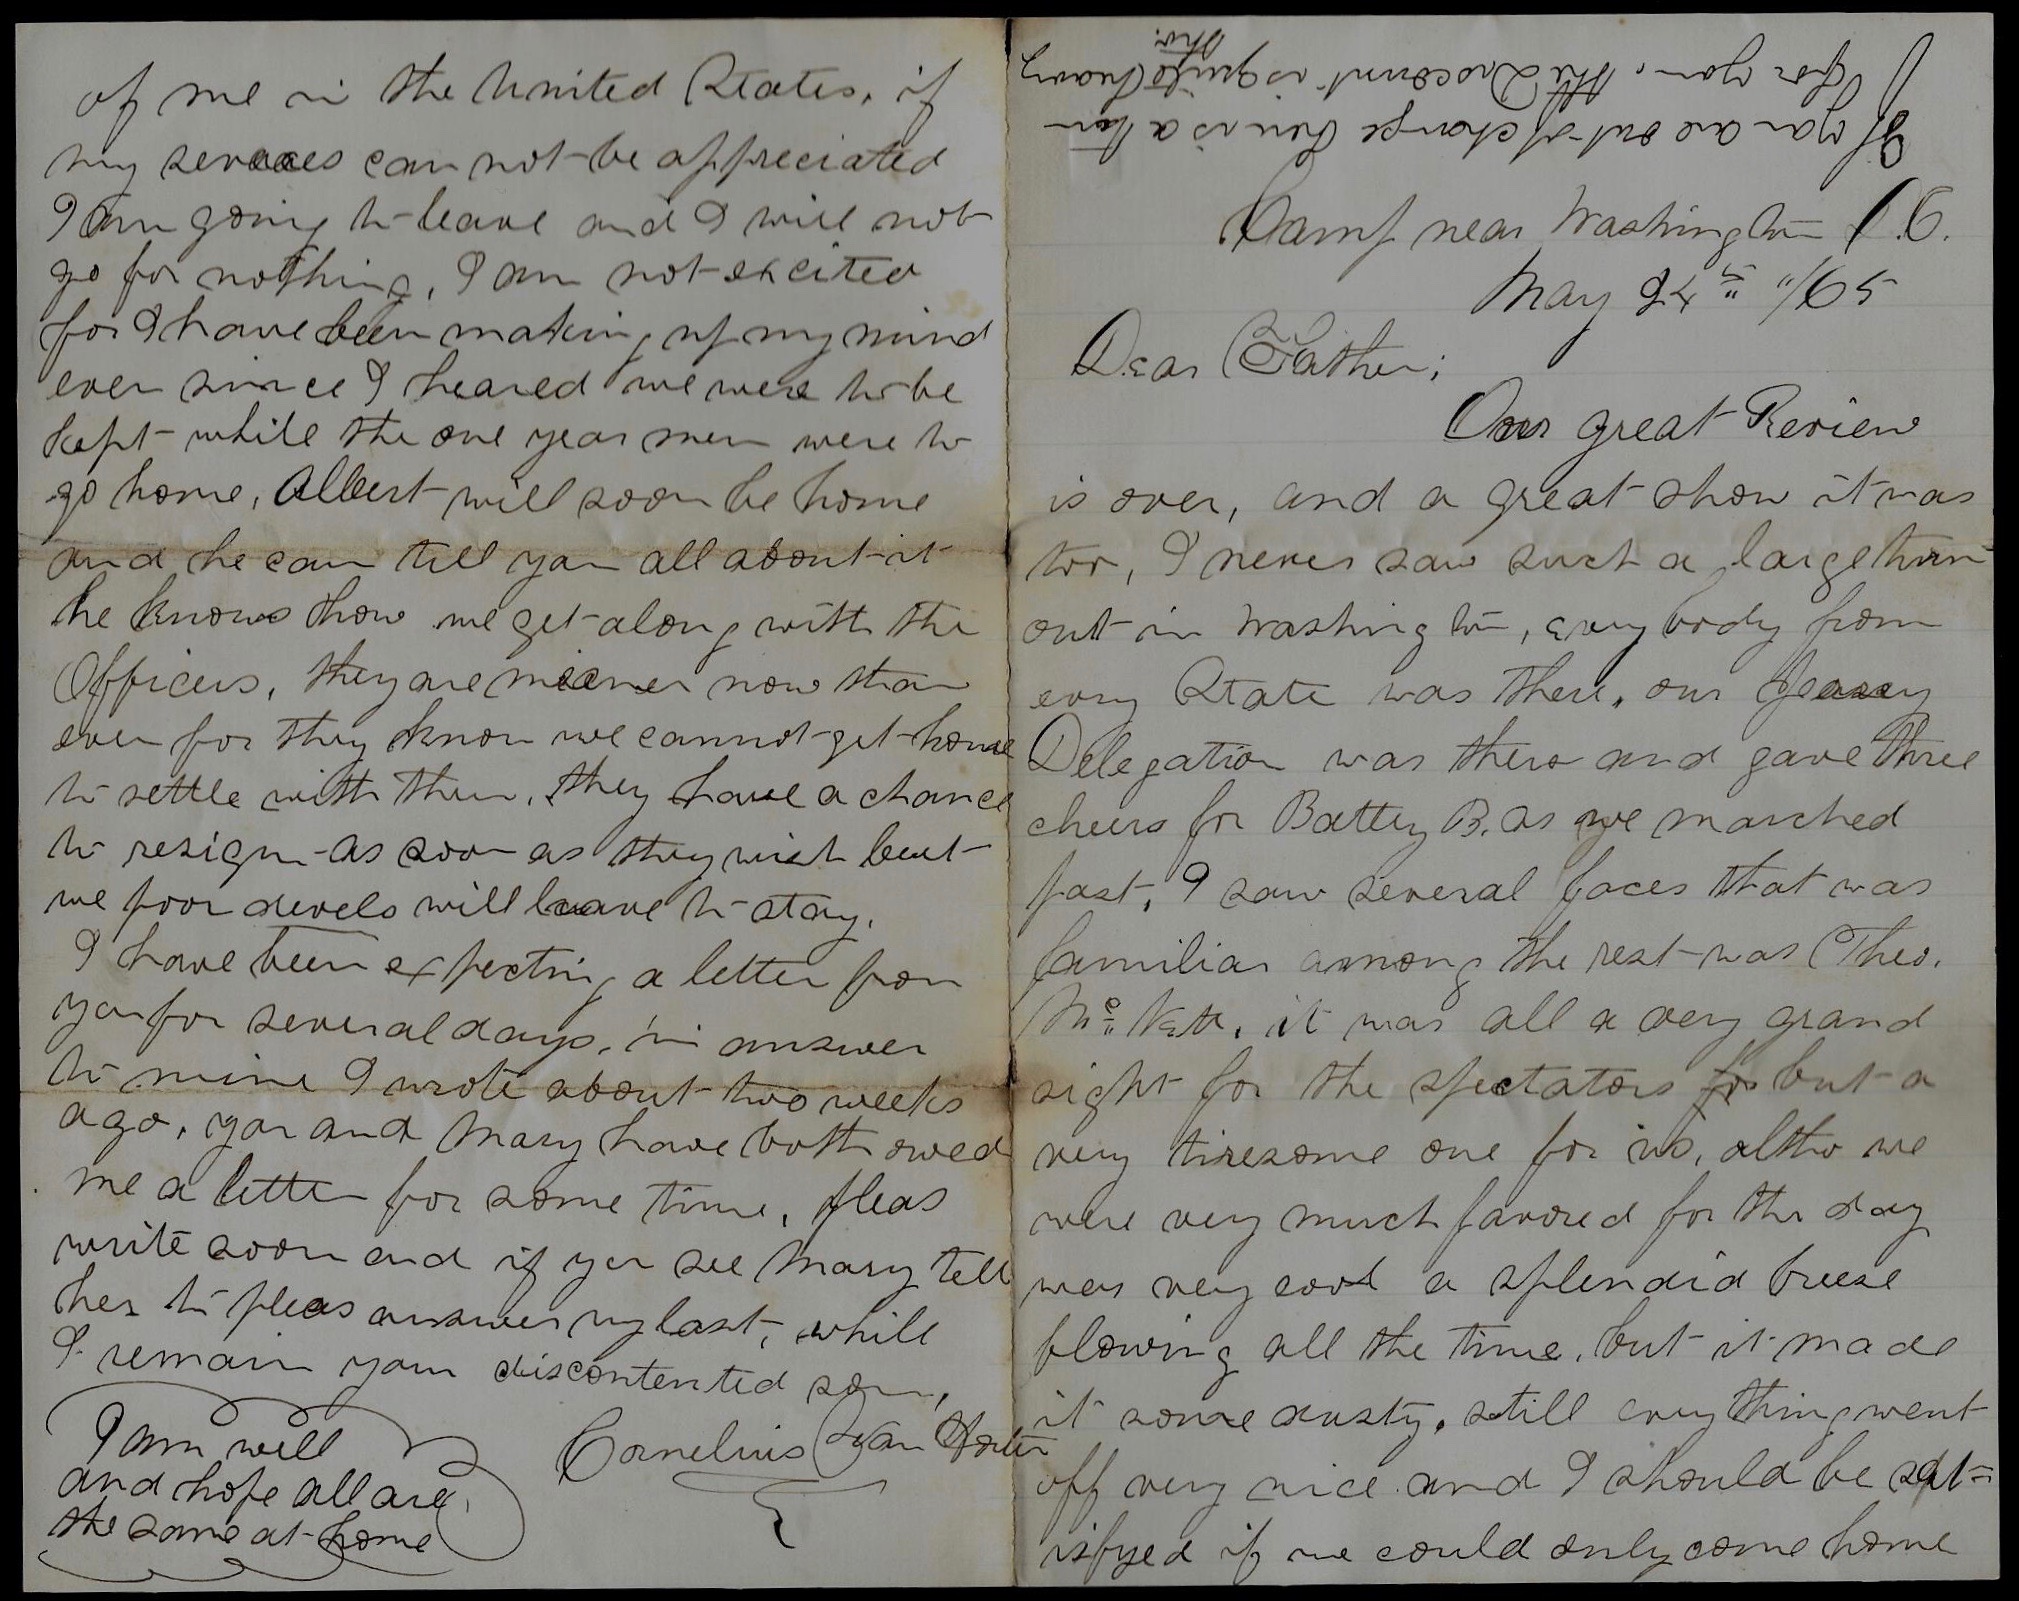 If you are out of change here is a ten
for you, the Discount is quite heavy
tho.
Camp near Washington D.C.
May 24th "/65
Dear Father;
Our great Review
is over, and a great show it was
too, I never saw such a large turn
out in Washington, evry body from
evry State was there, our Jersey
Delegation was there and gave three
cheers for Battery B. as we marched
past, I saw several faces that was
familiar among the rest was Theo.
Mc Nett, it was all a very grand
sight for the spectators for but a
very tiresome one for us, altho we
were very much favored for the day
was very cool a splendid breeze
blowing all the time, but it made
it some dusty, still evry thing went
off very nice and I should be sat=
isfyed if we could only come home
of me in the United States, if
my services can not be appreciated
I am going to leave and I will not
go for nothing, I am not excited
for I have been making up my mind
ever since I heared we were to be
kept while the one year men were to
go home, Albert will soon be home
and he can tell you all about it
he knows how we get along with the
Officers, they are meaner now than
ever for they know we cannot get home
to settle with them, they have a chance
to resign as soon as they wish but
we poor devels will have to stay.
I have been expecting a letter from
you for several days, in answer
to mine I wrote about two weeks
ago, you and Mary have both owed
me a letter for some time, pleas
write soon and if you see Mary tell
her to pleas answer my last, while
I remain your discontented son,
Cornelius Van Houten
I am well
and hope all are
the same at home